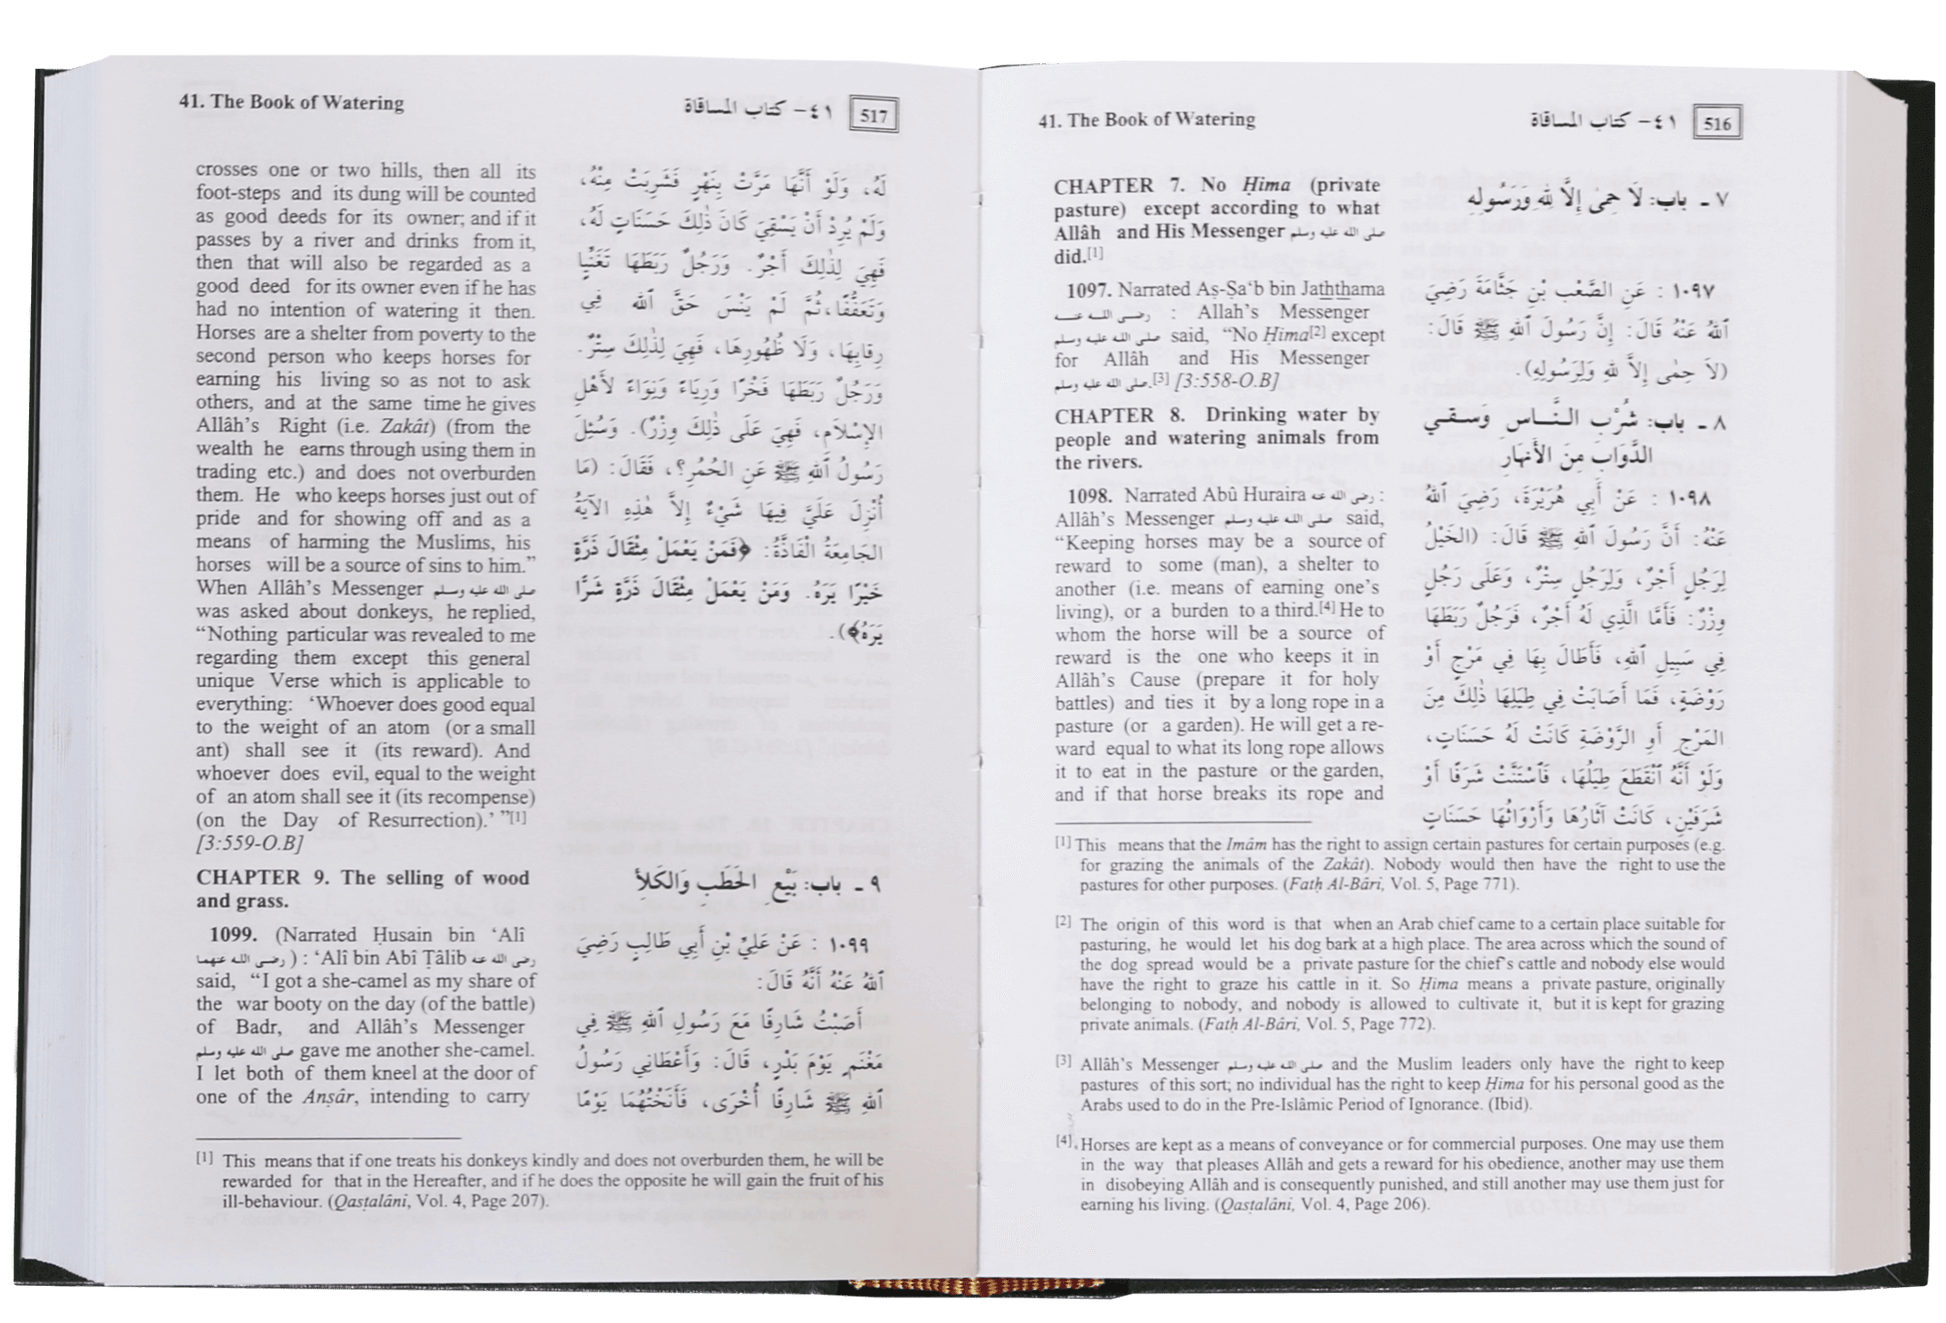 41. The Book of Watering
٤١- كتاب المساقاة
516
CHAPTER 7. No Ḥima (private
pasture) except according to what
Allâh and His Messenger صلى الله عليه وسلم
did.[1]
1097. Narrated Aṣ-Ṣa‘b bin Jaththama
رضى الله عنه : Allah's Messenger
صلى الله عليه وسلم said, “No Ḥima[2] except
for Allâh and His Messenger
صلى الله عليه وسلم.[3] [3:558-O.B]
CHAPTER 8. Drinking water by
people and watering animals from
the rivers.
1098. Narrated Abû Huraira رضى الله عنه :
Allâh's Messenger صلى الله عليه وسلم said,
“Keeping horses may be a source of
reward to some (man), a shelter to
another (i.e. means of earning one's
living), or a burden to a third.[4] He to
whom the horse will be a source of
reward is the one who keeps it in
Allâh's Cause (prepare it for holy
battles) and ties it by a long rope in a
pasture (or a garden). He will get a re-
ward equal to what its long rope allows
it to eat in the pasture or the garden,
and if that horse breaks its rope and
٧ ـ باب: لَا حِمَىٰ إِلَّا لِلهِ وَرَسُولِهِ
١٠٩٧ : عَنِ الصَّعْبِ بْنِ جَثَّامَةَ رَضِيَ
اللهُ عَنْهُ قَالَ: إِنَّ رَسُولَ اللهِ ﷺ قَالَ:
(لَا حِمَىٰ إِلَّا لِلهِ وَلِرَسُولِهِ).
٨ ـ باب: شُرْبِ النَّاسِ وَسَقي
الدَّوَابِ مِنَ الأَنهارِ
١٠٩٨ : عَنْ أَبِي هُرَيْرَةَ، رَضِيَ اللهُ
عَنْهُ: أَنَّ رَسُولَ اللهِ ﷺ قَالَ: (الخَيْلُ
لِرَجُلٍ أَجْرٌ، وَلِرَجُلٍ سِتْرٌ، وَعَلَى رَجُلٍ
وِزْرٌ: فَأَمَّا الَّذِي لَهُ أَجْرٌ، فَرَجُلٌ رَبَطَهَا
فِي سَبِيلِ اللهِ، فَأَطَالَ بِهَا فِي مَرْجٍ أَوْ
رَوْضَةٍ، فَمَا أَصَابَتْ فِي طِيَلِهَا ذٰلِكَ مِنَ
المَرْجِ أَوِ الرَّوْضَةِ كَانَتْ لَهُ حَسَنَاتٍ،
وَلَوْ أَنَّهُ انْقَطَعَ طِيَلُهَا، فَاسْتَنَّتْ شَرَفًا أَوْ
شَرَفَيْنِ، كَانَتْ آثَارُهَا وَأَرْوَاثُهَا حَسَنَاتٍ
[1] This means that the Imâm has the right to assign certain pastures for certain purposes (e.g.
for grazing the animals of the Zakât). Nobody would then have the right to use the
pastures for other purposes. (Fatḥ Al-Bâri, Vol. 5, Page 771).
[2] The origin of this word is that when an Arab chief came to a certain place suitable for
pasturing, he would let his dog bark at a high place. The area across which the sound of
the dog spread would be a private pasture for the chief's cattle and nobody else would
have the right to graze his cattle in it. So Ḥima means a private pasture, originally
belonging to nobody, and nobody is allowed to cultivate it, but it is kept for grazing
private animals. (Fatḥ Al-Bâri, Vol. 5, Page 772).
[3] Allâh's Messenger صلى الله عليه وسلم and the Muslim leaders only have the right to keep
pastures of this sort; no individual has the right to keep Ḥima for his personal good as the
Arabs used to do in the Pre-Islâmic Period of Ignorance. (Ibid).
[4] Horses are kept as a means of conveyance or for commercial purposes. One may use them
in the way that pleases Allâh and gets a reward for his obedience, another may use them
in disobeying Allâh and is consequently punished, and still another may use them just for
earning his living. (Qasṭalâni, Vol. 4, Page 206).
41. The Book of Watering
٤١- كتاب المساقاة
517
crosses one or two hills, then all its
foot-steps and its dung will be counted
as good deeds for its owner; and if it
passes by a river and drinks from it,
then that will also be regarded as a
good deed for its owner even if he has
had no intention of watering it then.
Horses are a shelter from poverty to the
second person who keeps horses for
earning his living so as not to ask
others, and at the same time he gives
Allâh's Right (i.e. Zakât) (from the
wealth he earns through using them in
trading etc.) and does not overburden
them. He who keeps horses just out of
pride and for showing off and as a
means of harming the Muslims, his
horses will be a source of sins to him.”
When Allâh's Messenger صلى الله عليه وسلم
was asked about donkeys, he replied,
“Nothing particular was revealed to me
regarding them except this general
unique Verse which is applicable to
everything: ‘Whoever does good equal
to the weight of an atom (or a small
ant) shall see it (its reward). And
whoever does evil, equal to the weight
of an atom shall see it (its recompense)
(on the Day of Resurrection).’ ”[1]
[3:559-O.B]
CHAPTER 9. The selling of wood
and grass.
1099. (Narrated Ḥusain bin ‘Alî
رضى الله عنهما ) : ‘Alî bin Abî Ṭâlib رضى الله عنه
said, “I got a she-camel as my share of
the war booty on the day (of the battle)
of Badr, and Allâh's Messenger
صلى الله عليه وسلم gave me another she-camel.
I let both of them kneel at the door of
one of the Anṣâr, intending to carry
لَهُ، وَلَوْ أَنَّهَا مَرَّتْ بِنَهْرٍ فَشَرِبَتْ مِنْهُ،
وَلَمْ يُرِدْ أَنْ يَسْقِيَ كَانَ ذٰلِكَ حَسَنَاتٍ لَهُ،
فَهِيَ لِذٰلِكَ أَجْرٌ. وَرَجُلٌ رَبَطَهَا تَغَنِّيًا
وَتَعَفُّفًا،ثُمَّ لَمْ يَنْسَ حَقَّ اللهِ فِي
رِقابِهَا، وَلَا ظُهُورِهَا، فَهِيَ لِذٰلِكَ سِتْرٌ.
وَرَجُلٌ رَبَطَهَا فَخْرًا وَرِيَاءً وَنِوَاءً لأَهْلِ
الإِسْلَامِ، فَهِيَ عَلَى ذٰلِكَ وِزْرٌ). وَسُئِلَ
رَسُولُ اللهِ ﷺ عَنِ الحُمُرِ؟، فَقَالَ: (مَا
أُنْزِلَ عَلَيَّ فِيهَا شَيْءٌ إِلَّا هٰذِهِ الآيَةُ
الجَامِعَةُ الْفَاذَّةُ: ﴿فَمَنْ يَعْمَلْ مِثْقَالَ ذَرَّةٍ
خَيْرًا يَرَهُ. وَمَنْ يَعْمَلْ مِثْقَالَ ذَرَّةٍ شَرًّا
يَرَهُ﴾).
٩ ـ باب: بَيْعِ الحَطَبِ وَالكَلأ
١٠٩٩ : عَنْ عَلِيِّ بْنِ أَبِي طَالِبٍ رَضِيَ
اللهُ عَنْهُ أَنَّهُ قَالَ:
أَصَبْتُ شَارِفًا مَعَ رَسُولِ اللهِ ﷺ فِي
مَغْنَمِ يَوْمَ بَدْرٍ، قَالَ: وَأَعْطَانِي رَسُولُ
اللهِ ﷺ شَارِفًا أُخْرَى، فَأَنَخْتُهُمَا يَوْمًا
[1] This means that if one treats his donkeys kindly and does not overburden them, he will be
rewarded for that in the Hereafter, and if he does the opposite he will gain the fruit of his
ill-behaviour. (Qasṭalâni, Vol. 4, Page 207).